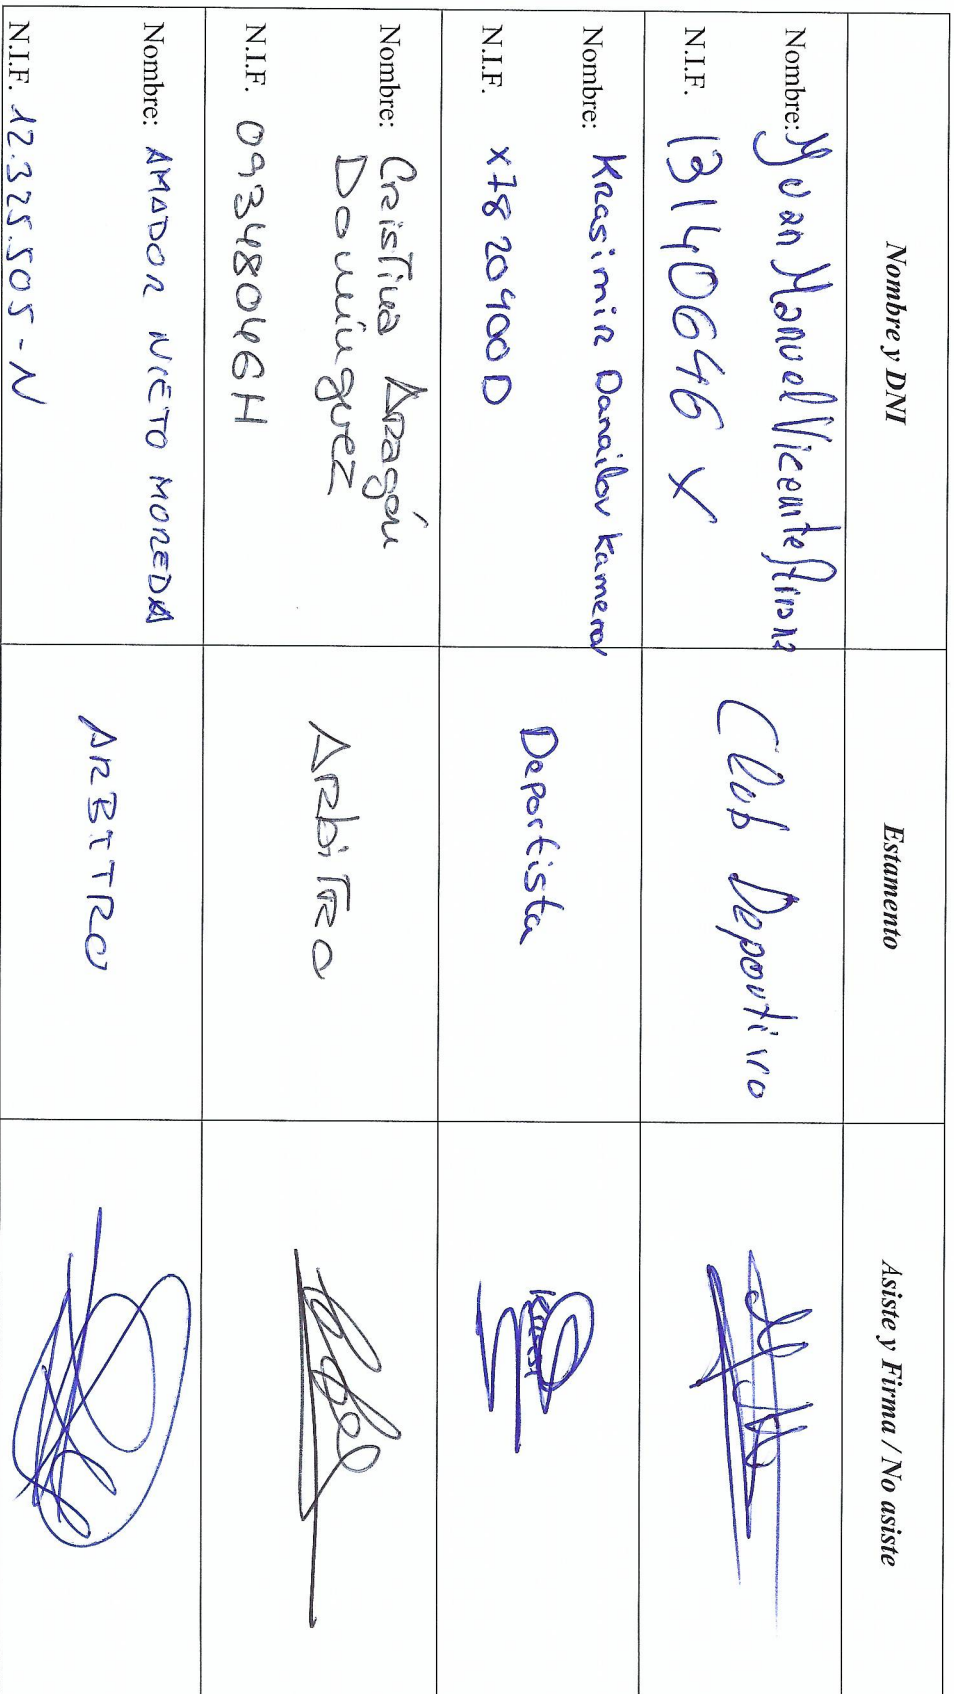 Nombre y DNI
Estamento
Asiste y Firma / No asiste
Nombre: Juan Manuel Vicente
N.I.F. 13140646 X
Club Deportivo
Nombre: Krasimir Danailov Kamenov
N.I.F. X7820400D
Deportista
Nombre: Cristina Aragón
Domínguez
N.I.F. 09348046H
Arbitro
Nombre: AMADOR NIETO MOREDA
N.I.F. 12.325.505-N
ARBITRO